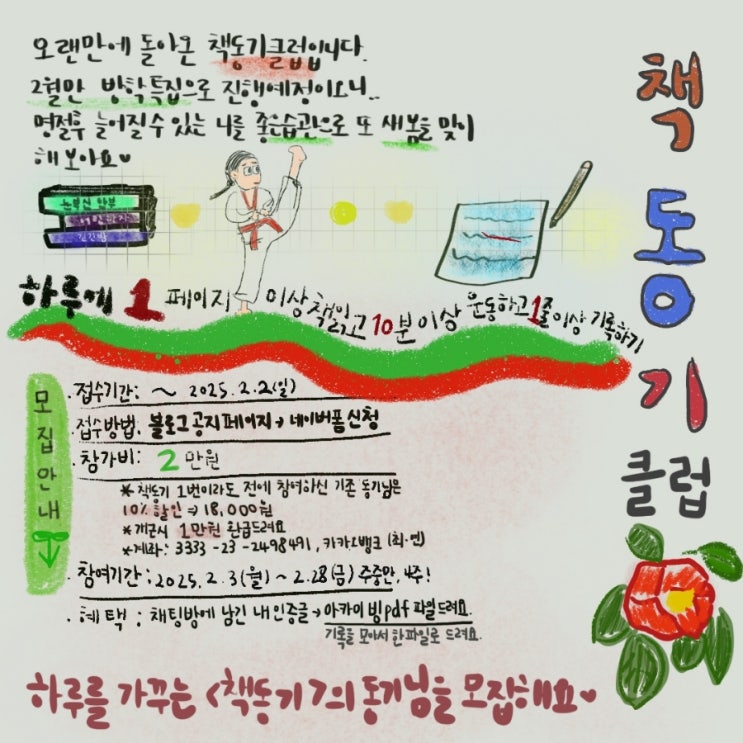 오랜만에 돌아온 책동기클럽입니다.
2월만 방학특집으로 진행예정이오니..
명절후 늘어질수 있는 나를 좋은습관으로 또 새봄을 맞이
해 보아요♥
눈부신 안부
하루에 1 페이지 이상 책읽고 10분이상 운동하고 1줄이상 기록하기
책동기클럽
모집안내
· 접수기간: ~ 2025.2.2(일)
· 접수방법. 블로그 공지 페이지 → 네이버폼 신청
· 참가비: 2만원
* 책동기 1번이라도 전에 참여하신 기존 동기님은
10% 할인 ⇒ 18,000원
* 개근시 1만원 환급드려요
* 계좌: 3333-23-2498491, 카카오뱅크 (최·연)
· 참여기간: 2025.2.3(월) ~ 2.28(금) 주중만, 4주!
· 혜택: 채팅방에 남긴 내 인증글 → 아카이빙pdf 파일드려요.
기록을 모아서 한파일로 드려요.
하루를 가꾸는 <책동기 7의 동기님을 모집해요♥